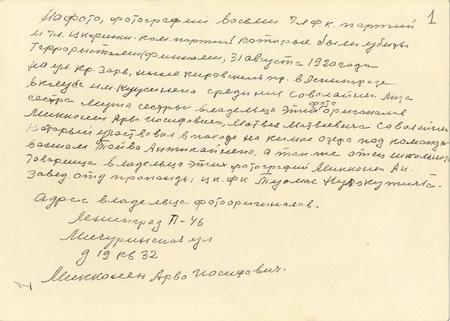 1
На фото, фотографий восьми. Чл фк. партий
и чл. цк финск. ком. партий которые были убиты
террористами (финнами, 31 августа 1920 года
на ул кр. Зорь, ныне кировский пр. в Ленинграде
в клубе им Куусинена среди них Саволайнен Лиза
сестра мужа сестры владельца этих фото оригиналов
Минконен Арво Иосифовича, Матвея Матвеевича Саволайнен
который участвовал в походе на кимас озеро под командо
ванием Тойво Антикайнена, а так же отец школьного
товарища владельца этих фотографий Минконен Ан.
Завед. отд пропаганды, цк. фк Туомас
Адрес владельца фотооригиналов.
Ленинград П-46
Мичуринская ул
д 19 кв 32
Минконен Арво Иосифович.